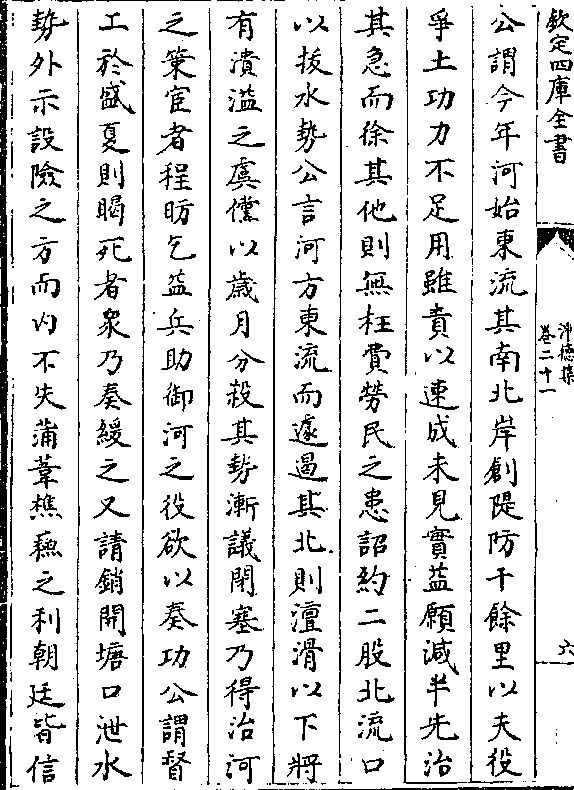 欽定四庫全書
淨德集
卷二十一
六
公謂今年河始東流其南北岸創隄防千餘里以夫役
爭土功力不足用雖責以速成未見實益願減半先治
其急而徐其他則無枉費勞民之患詔約二股北流口
以拔水勢公言河方東流而遽遏其北則澶滑以下將
有潰溢之虞儻以歲月分殺其勢漸議閉塞乃得治河
之策宦者程昉乞益兵助御河之役欲以奏功公謂督
工於盛夏則暍死者衆乃奏緩之又請銷開塘口泄水
勢外示設險之方而内不失蒲葦樵蘓之利朝廷皆信